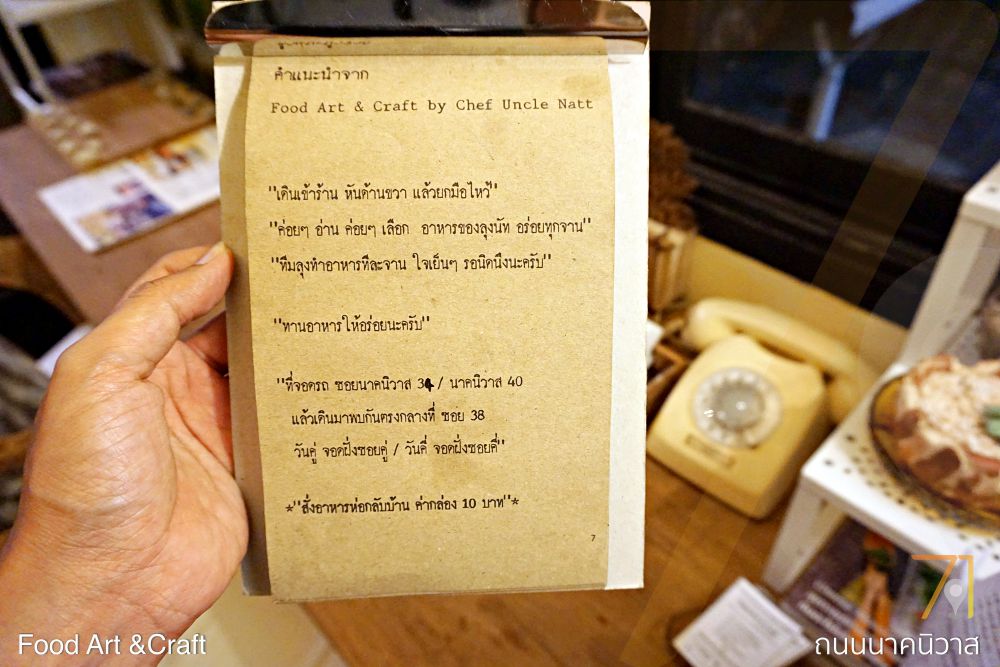 คำแนะนำจาก
Food Art & Craft by Chef Uncle Natt
"เดินเข้าร้าน หันด้านขวา แล้วยกมือไหว้"
"ค่อยๆ อ่าน ค่อยๆ เลือก อาหารของลุงนัท อร่อยทุกจาน"
"ทีมลุงทำอาหารทีละจาน ใจเย็นๆ รอนิดนึงนะครับ"
"ทานอาหารให้อร่อยนะครับ"
"ที่จอดรถ ซอยนาคนิวาส 34 / นาคนิวาส 40
แล้วเดินมาพบกันตรงกลางที่ ซอย 38
วันคู่ จอดฝั่งซอยคู่ / วันคี่ จอดฝั่งซอยคี่"
*"สั่งอาหารห่อกลับบ้าน ค่ากล่อง 10 บาท"*
7
71
Food Art &Craft
ถนนนาคนิวาส